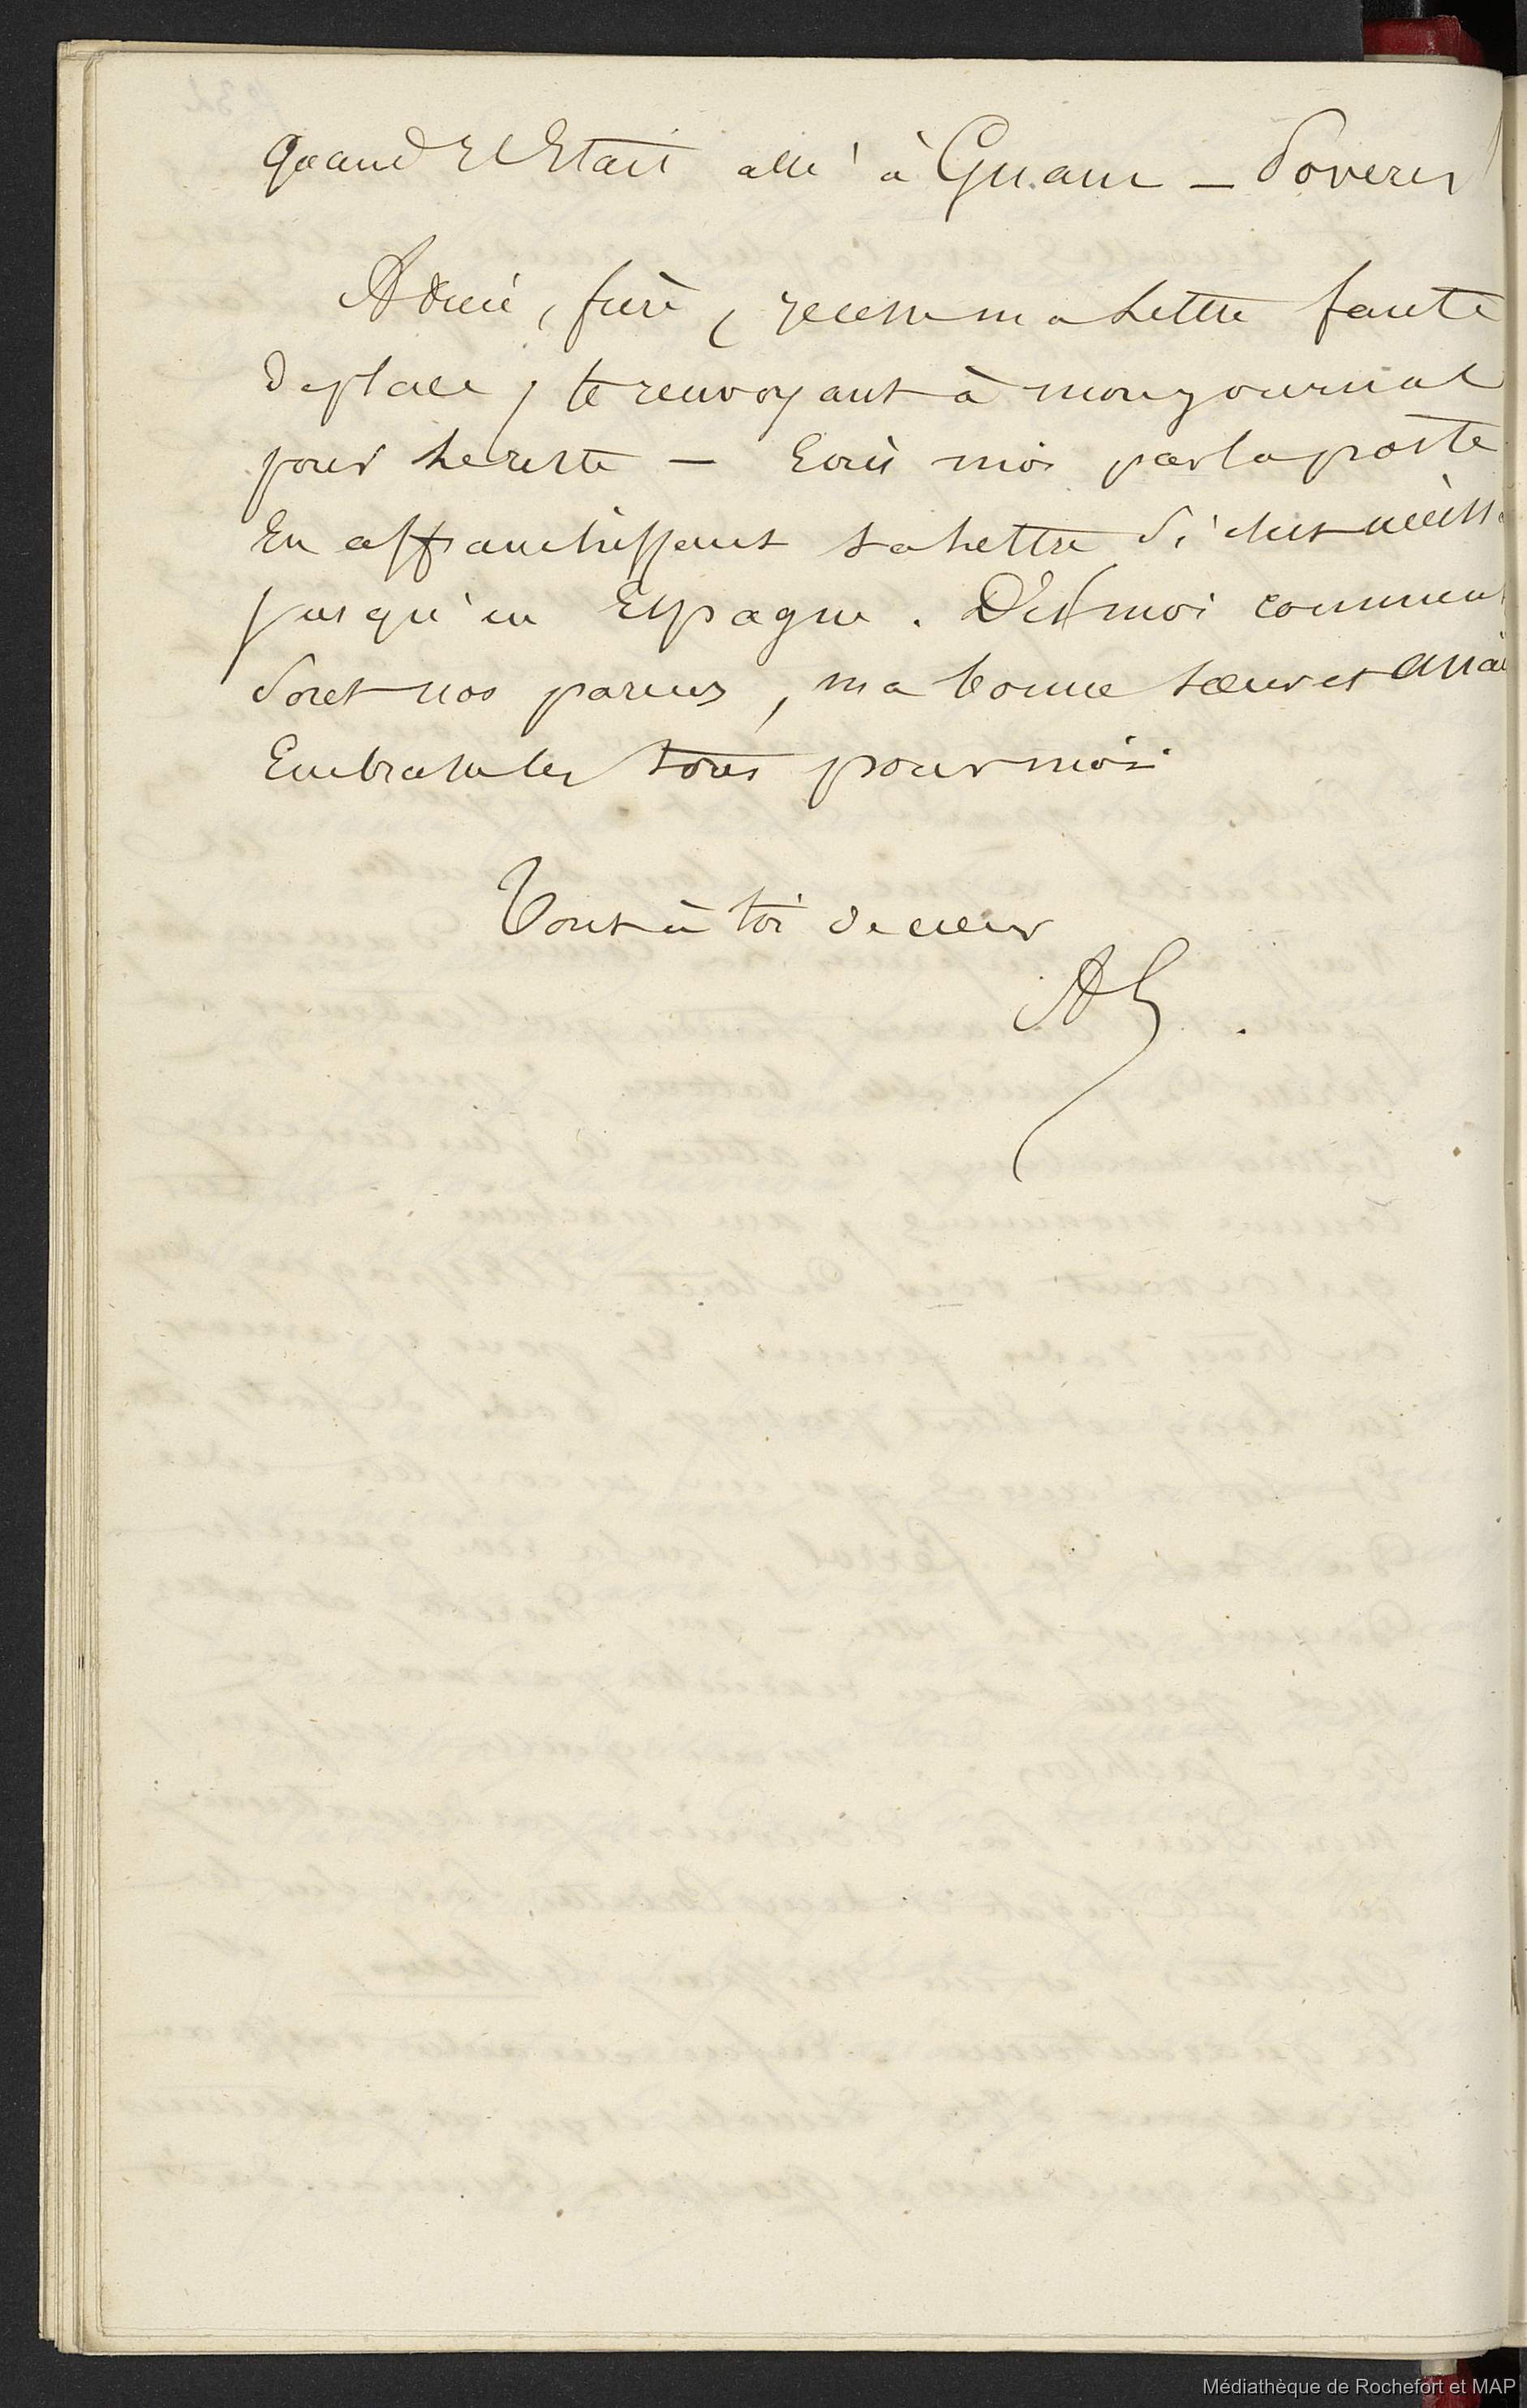 quand il était allé à Guam —
Adieu, frère, je cesse ma lettre faute
de place, te renvoyant à mon journal
pour le reste — Ecris moi par la poste
En affranchissant ta lettre si c'est
jusqu'en Espagne. Dis moi comment
sont nos parens, ma bonne sœur et
Embrasse les tous pour moi
Tout à toi de cœur
AL.
Médiathèque de Rochefort et MAP